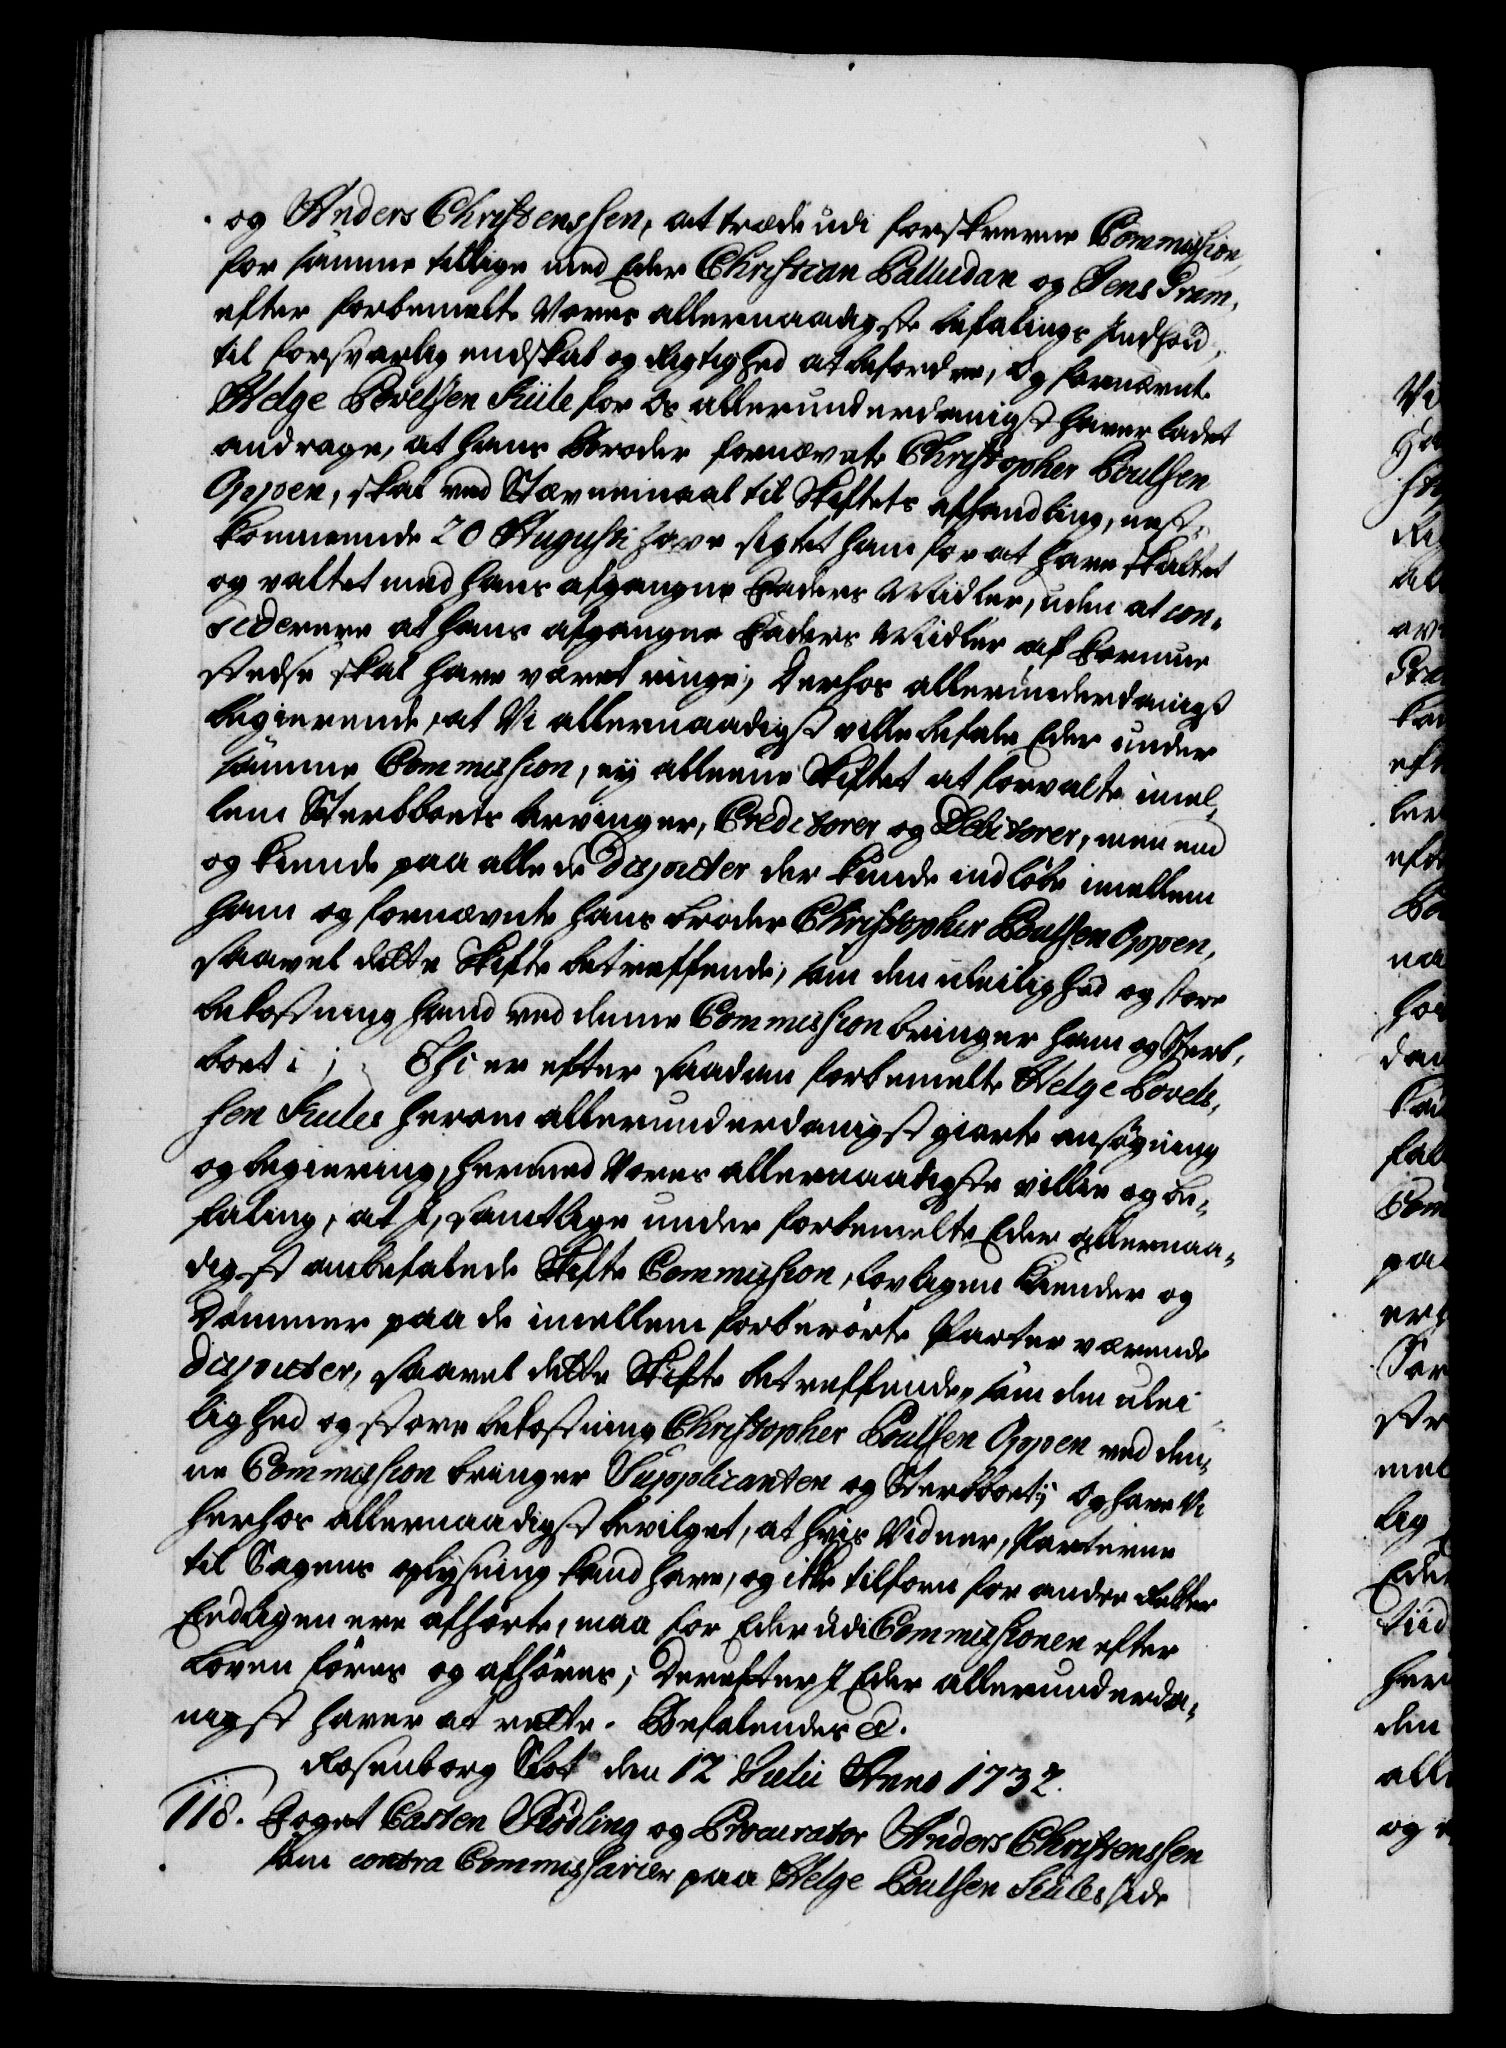 og Anders Christenssen, at træde udi forskrevne Commission,
for samme tillige med Eder Christian Balludan og Jens Pram,
efter forbemelte Vores allernaadigste befalings Indhold,
til forsvarlig endskab og Rigtighed at befordre, Og fornævnte
Helge Povelssen Kule for Os allerunderdanigst haver ladet
andrage, at hans Broder fornævnte Christopher Poulsen
Oppen, skal ved Stævnemaal til Skiftets afhandling, nest-
kommende 20 Augusti have sigtet ham for at have skaltet
og valtet med hans afgangne Faders Midler, uden at con-
siderere at hans afgangne Faders Midler af
stedse skal have været ringe; Derhos allerunderdanigst
begierende, at Vi allernaadigst ville befale Eder under
samme Commission, ey alleene Skiftet at forvalte imel-
lem Sterbboets Arvinger, Creditorer og Debitorer, men end
og kiende paa alle de Disputer der kunde indløbe imellem
ham og fornævnte hans broder Christopher Poulsen Oppen,
saavel dette Skifte betreffende, som den uleilighed og store
bekostning hand ved denne Commission bringer ham og Sterb-
boet i; Thi er efter saadan forbemelte Helge Povels-
sen Kules herom allerunderdanigst giorte ansøgning
og begiering, hermed Vores allernaadigste villie og be-
faling, at I, samtlige under forbemelte Eder allernaa-
digst anbefalede Skifte Commission, lovligen kiender og
Dømmer paa de imellem forberørte Parter værende
Disputer, saavel dette Skifte betreffende, som den ulei-
lighed og store bekostning Christopher Poulsen Oppen ved den-
ne Commission bringer Supplicanten og Sterbboet i; Og have Vi
herhos allernaadigst bevilget, at hvis Vidner, Parterne
til Sagens oplysning kand have, og ikke tilforn for andre Retter
Endeligen ere afhørte, maa for Eder udi Commissionen efter
Loven føres og afhøres; Derefter I Eder allerunderda-
nigst haver at rette. Befalendes &.
Rosenborg Slot den 12 Julii Anno 1732.
118. Foget Casten Rødling og Procurator Anders Christenssen
som contra Commissarier paa Helge Poulsen Kules side